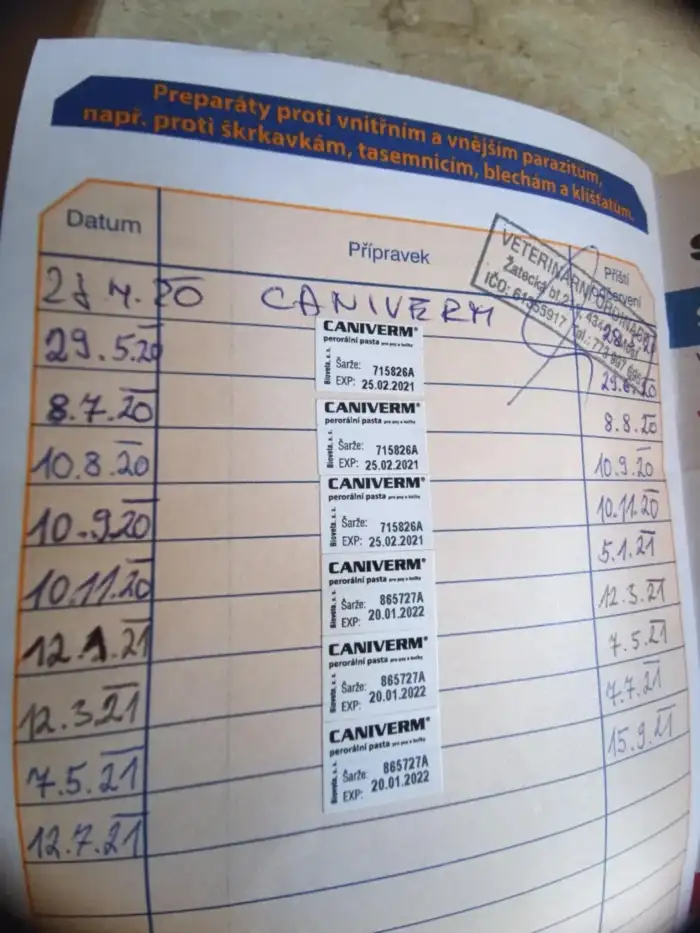 Preparáty proti vnitřním a vnějším parazitům,
např. proti škrkavkám, tasemnicím, blechám a klíšťatům.
Datum
Přípravek
Příští
odčervení
VETERINÁRNÍ ORDINACE
Žatecká
IČO: 61355917 Tel.: 773
20 CANIVERM
29.5.20
29.6.20
CANIVERM®
perorální pasta pro psy a kočky
Bioveta, a. s.
Šarže: 715826A
EXP: 25.02.2021
8.7.20
8.8.20
CANIVERM®
perorální pasta pro psy a kočky
Bioveta, a. s.
Šarže: 715826A
EXP: 25.02.2021
10.8.20
10.9.20
CANIVERM®
perorální pasta pro psy a kočky
Bioveta, a. s.
Šarže: 715826A
EXP: 25.02.2021
10.9.20
10.11.20
CANIVERM®
perorální pasta pro psy a kočky
Bioveta, a. s.
Šarže: 865727A
EXP: 20.01.2022
10.11.20
5.1.21
CANIVERM®
perorální pasta pro psy a kočky
Bioveta, a. s.
Šarže: 865727A
EXP: 20.01.2022
12.1.21
12.3.21
CANIVERM®
perorální pasta pro psy a kočky
Bioveta, a. s.
Šarže: 865727A
EXP: 20.01.2022
12.3.21
7.5.21
7.5.21
7.7.21
12.7.21
15.9.21